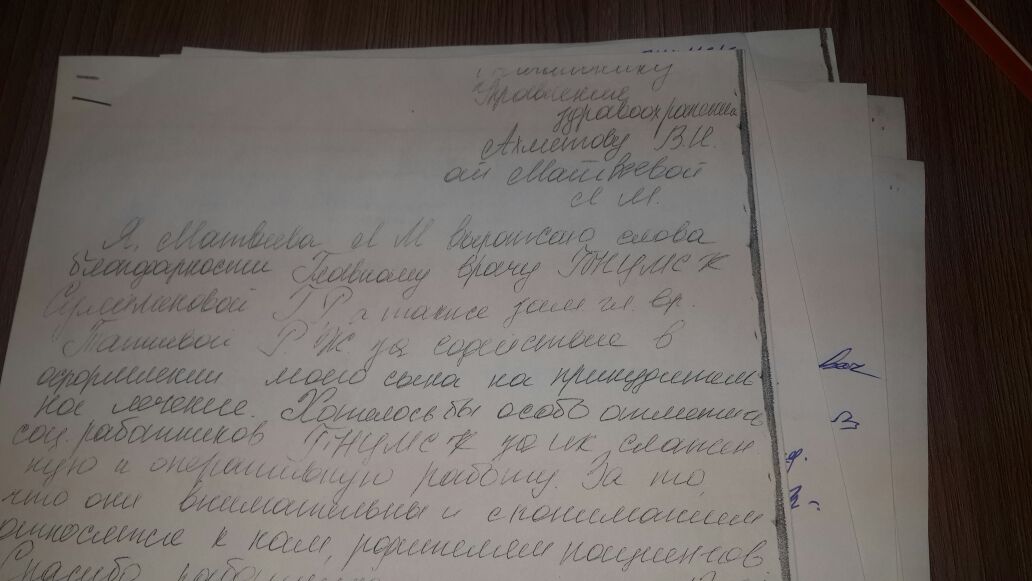 Управление
здравоохранения
Ахметову В.И.
от Матвеевой
Л М.
Я, Матвеева Л М выражаю слова
благодарности Главному врачу ГКП
Г Р а также зам гл. вр.
Р Ж за содействие в
оформлении моего сына на принудитель
ное лечение. Хотелось бы особо отметить
соц. работников за их слажен
ную и оперативную работу. За то,
что они внимательны и с пониманием
относятся к нам, родителям пациентов
Спасибо